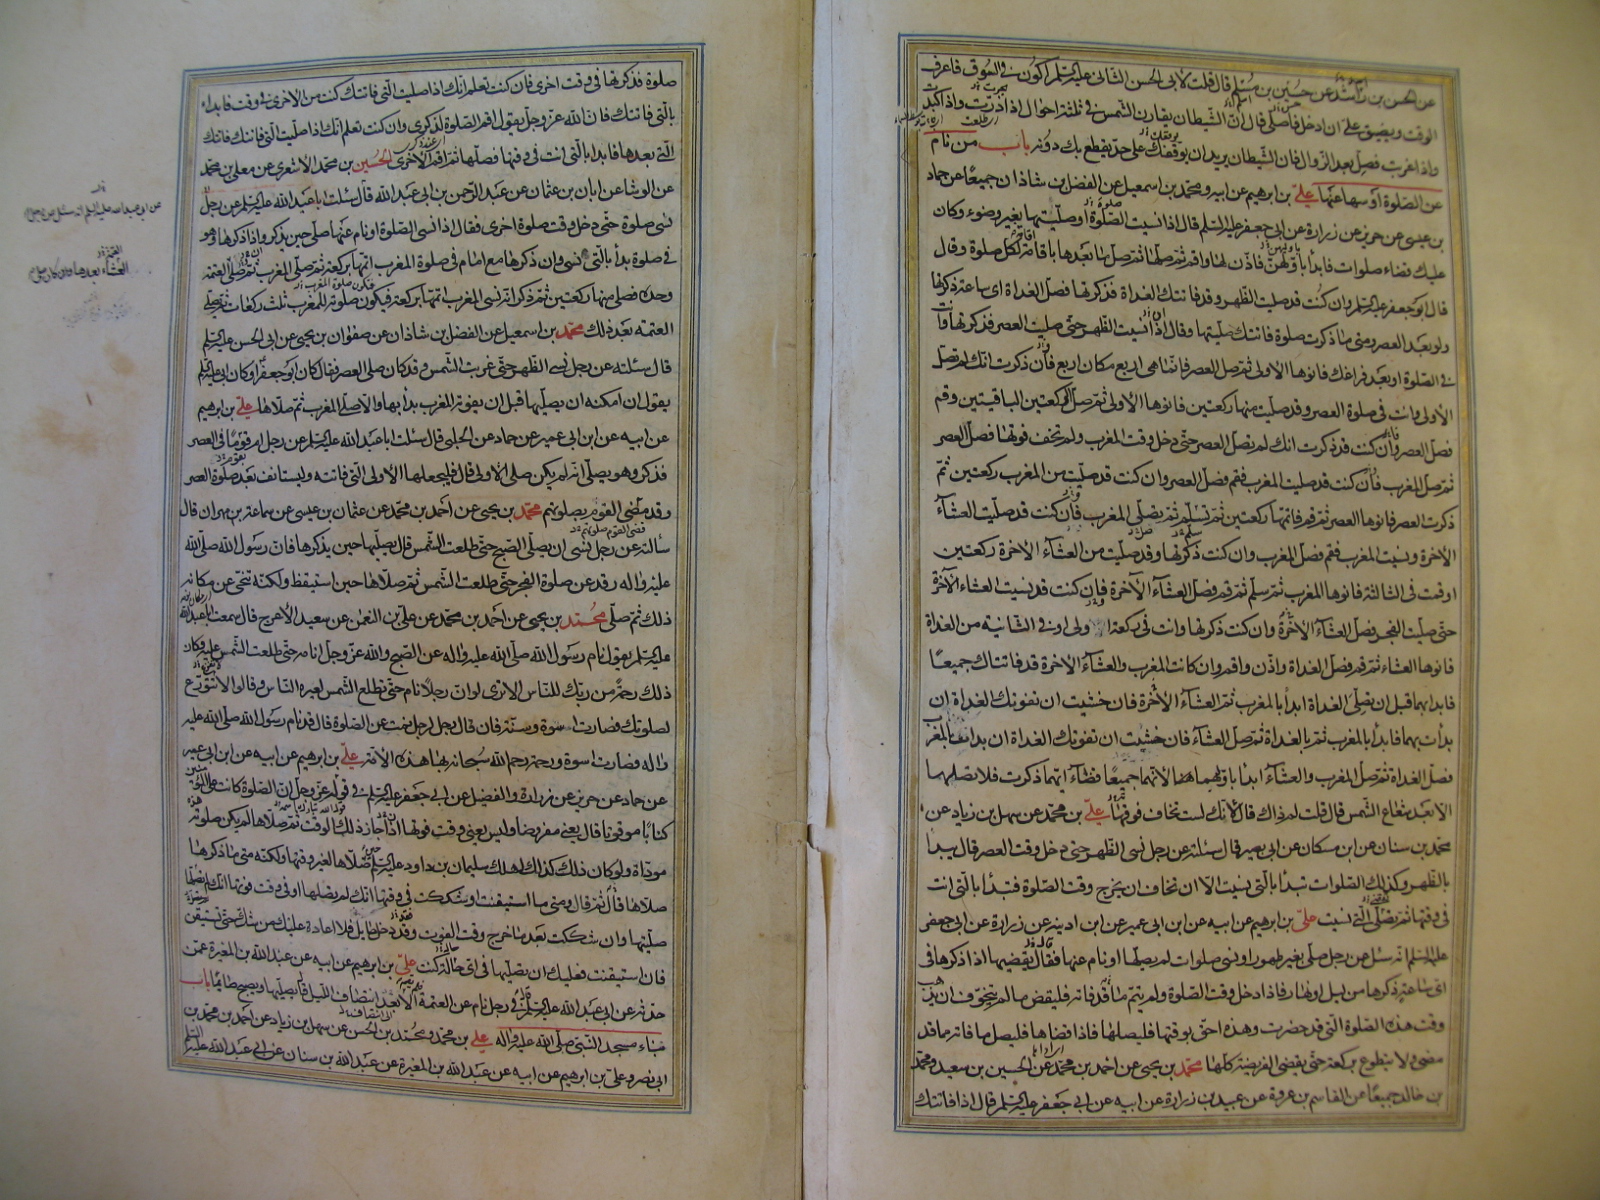 عن الحسن بن راشد عن حسين بن مسلم قال قلت لابى الحسن الثانى عليه السلم اكون فى السوق فاعرف
الوقت ويضيق على ان ادخل فاصلى قال ان الشيطان يقارن الشمس فى ثلثة احوال اذا ذرت واذا كبدت
واذا غربت فصل بعد الزوال فان الشيطان يريد ان يوقفك على حد يقطع بك دونه باب من نام
عن الصلوة او سها عنها على بن ابرهيم عن ابيه ومحمد بن اسمعيل عن الفضل بن شاذان جميعا عن حماد
بن عيسى عن حريز عن زرارة عن ابى جعفر عليه السلم قال اذا نسيت الصلوة او صليتها بغير وضوء وكان
عليك قضاء صلوات فابدأ باولهن فاذن لها واقم ثم صلها ثم صل ما بعدها باقامة لكل صلوة وقال
قال ابو جعفر عليه السلم وان كنت قد صليت الظهر وقد فاتتك الغداة فذكرتها فصل الغداة اى ساعة ذكرتها
ولو بعد العصر ومتى ما ذكرت صلوة فاتتك صليتها وقال اذا نسيت الظهر حتى صليت العصر فذكرتها وانت
فى الصلوة او بعد فراغك فانوها الاولى ثم صل العصر فانما هى اربع مكان اربع فان ذكرت انك لم تصل
الاولى وانت فى صلوة العصر وقد صليت منها ركعتين فانوها الاولى ثم صل الركعتين الباقيتين وقم
فصل العصر وان كنت قد ذكرت انك لم تصل العصر حتى دخل وقت المغرب ولم تخف فوتها فصل العصر
ثم صل المغرب فان كنت قد صليت المغرب فقم فصل العصر وان كنت قد صليت من المغرب ركعتين ثم
ذكرت العصر فانوها العصر ثم قم فاتمها ركعتين ثم تسلم ثم تصلى المغرب فان كنت قد صليت العشاء
الاخرة ونسيت المغرب فقم فصل المغرب وان كنت ذكرتها وقد صليت من العشاء الاخرة ركعتين
او قمت فى الثالثة فانوها المغرب ثم سلم ثم قم فصل العشاء الاخرة فان كنت قد نسيت العشاء الاخرة
حتى صليت الفجر فصل العشاء الاخرة وان كنت ذكرتها وانت فى ركعة اولى او فى الثانية من الغداة
فانوها العشاء ثم قم فصل الغداة واذن واقم وان كانت المغرب والعشاء الاخرة قد فاتتاك جميعا
فابدا بهما قبل ان تصلى الغداة ابدأ بالمغرب ثم العشاء الاخرة فان خشيت ان تفوتك الغداة ان
بدأت بهما فابدأ بالمغرب ثم بالغداة ثم صل العشاء فان خشيت ان تفوتك الغداة ان بدأت بالمغرب
فصل الغداة ثم صل المغرب والعشاء ابدا باولهما لانهما جميعا قضاء ايهما ذكرت فلا تصلهما
الا بعد شعاع الشمس قال قلت لم ذاك قال لانك لست تخاف فوتها على بن محمد عن سهل بن زياد عن
محمد بن سنان عن ابن مسكان عن ابى بصير قال سئلته عن رجل نسى الظهر حتى دخل وقت العصر قال يبدأ
بالظهر وكذلك الصلوات تبدأ بالتى نسيت الا ان تخاف ان يخرج وقت الصلوة فتبدأ بالتى انت
فى وقتها ثم تصلى التى نسيت على بن ابرهيم عن ابيه عن ابن ابى عمير عن ابن اذينه عن زرارة عن ابى جعفر
عليه السلم انه سئل عن رجل صلى بغير طهور او نسى صلوات لم يصلها او نام عنها فقال يقضيها اذا ذكرها فى
اى ساعة ذكرها من ليل او نهار فاذا دخل وقت الصلوة ولم يتم ما قد فاته فليقض ما لم يتخوف ان يذهب
وقت هذه الصلوة التى قد حضرت وهذه احق بوقتها فليصلها فاذا قضاها فليصل ما فاته ما قد
مضى ولا يتطوع بركعة حتى يقضى الفريضة كلها محمد بن يحيى عن احمد بن محمد عن الحسين بن سعيد ومحمد
بن خالد جميعا عن القاسم بن عروة عن عبيد بن زرارة عن ابيه عن ابى جعفر عليه السلم قال اذا فاتتك
صلوة فذكرتها فى وقت اخرى فان كنت تعلم انك اذا صليت التى فاتتك كنت من الاخرى فى وقت فابداء
بالتى فاتتك فان الله عز وجل يقول اقم الصلوة لذكرى وان كنت تعلم انك اذا صليت التى فاتتك فاتتك
التى بعدها فابدا بالتى انت فى وقتها فصلها ثم اقم الاخرى الحسين بن محمد الاشعرى عن معلى بن محمد
عن الوشا عن ابان بن عثمان عن عبد الرحمن بن ابى عبد الله قال سئلت ابا عبد الله عليه السلم عن رجل
نسى صلوة حتى دخل وقت صلوة اخرى فقال اذا نسى الصلوة او نام عنها صلى حين يذكر واذا ذكرها وهو
فى صلوة بدأ بالتى نسى وان ذكرها مع امام فى صلوة المغرب اتمها بركعة ثم صلى المغرب ثم صلى العتمة
وحده فصلى منها ركعتين ثم ذكر انه نسى المغرب اتمها بركعة فيكون صلوته للمغرب ثلث ركعات ثم صلى
العتمة بعد ذلك محمد بن اسمعيل عن الفضل بن شاذان عن صفوان بن يحيى عن ابى الحسن عليه السلم
قال سئلته عن رجل نسى الظهر حتى غربت الشمس وقد كان صلى العصر فقال كان ابو جعفر او كان ابى عليه السلم
يقول ان امكنه ان يصليها قبل ان يفوته المغرب بدا بها والا صلى المغرب ثم صلاها على بن ابرهيم
عن ابيه عن ابن ابى عمير عن حماد عن الحلبى قال سئلت ابا عبد الله عليه السلم عن رجل ام قوما فى العصر
فذكر وهو يصلى انه لم يكن صلى الاولى قال فليجعلها الاولى التى فاتته وليستانف بعد صلوة العصر
وقد مضى القوم بصلوتهم محمد بن يحيى عن احمد بن محمد عن عثمان بن عيسى عن سماعة بن مهران قال
سألته عن رجل نسى ان يصلى الصبح حتى طلعت الشمس قال يصليها حين يذكرها فان رسول الله صلى الله
عليه واله رقد عن صلوة الفجر حتى طلعت الشمس ثم صلاها حين استيقظ ولكنه تنحى عن مكانه
ذلك ثم صلى محمد بن يحيى عن احمد بن محمد عن على بن النعمن عن سعيد الاعرج قال سمعت ابا عبد الله
عليه السلم يقول نام رسول الله صلى الله عليه واله عن الصبح والله عز وجل انامه حتى طلعت الشمس عليه وكان
ذلك رحمة من ربك للناس الا ترى لو ان رجلا نام حتى تطلع الشمس لعيره الناس وقالوا لا تتورع
لصلوتك فصارت اسوة وسنة فان قال رجل لرجل نمت عن الصلوة قال قد نام رسول الله صلى الله عليه
واله فصارت اسوة ورحمة رحم الله سبحانه بها هذه الامة على بن ابرهيم عن ابيه عن ابن ابى عمير
عن حماد عن حريز عن زرارة والفضيل عن ابى جعفر عليه السلم فى قوله عز وجل ان الصلوة كانت على المؤمنين
كتابا موقوتا قال يعنى مفروضا وليس يعنى وقت فوتها اذا جاز ذلك الوقت ثم صلاها لم يكن صلوته هذه
موداة ولو كان ذلك كذلك لهلك سليمان بن داود عليه السلم حين صلاها لغير وقتها ولكنه متى ما ذكرها
صلاها قال ثم قال ومتى ما استيقنت او شككت فى وقتها انك لم تصلها او فى وقت فوتها انك لم تصلها
صليتها وان شككت بعد ما خرج وقت الفوت وقد دخل حايل فلا اعادة عليك من شك حتى تستيقن
فان استيقنت فعليك ان تصليها فى اى حالة كنت على بن ابرهيم عن ابيه عن عبد الله بن المغيرة عمن
حدثه عن ابى عبد الله عليه السلم فى رجل نام عن العتمة الا بعد انتصاف الليل قال يصليها ويصبح صائما باب
بناء مسجد النبى صلى الله عليه واله على بن محمد ومحمد بن الحسن عن سهل بن زياد عن احمد بن محمد بن
ابى نصر وعلى بن ابرهيم عن ابيه عن عبد الله بن المغيرة عن عبد الله بن سنان عن ابى عبد الله عليه السلم